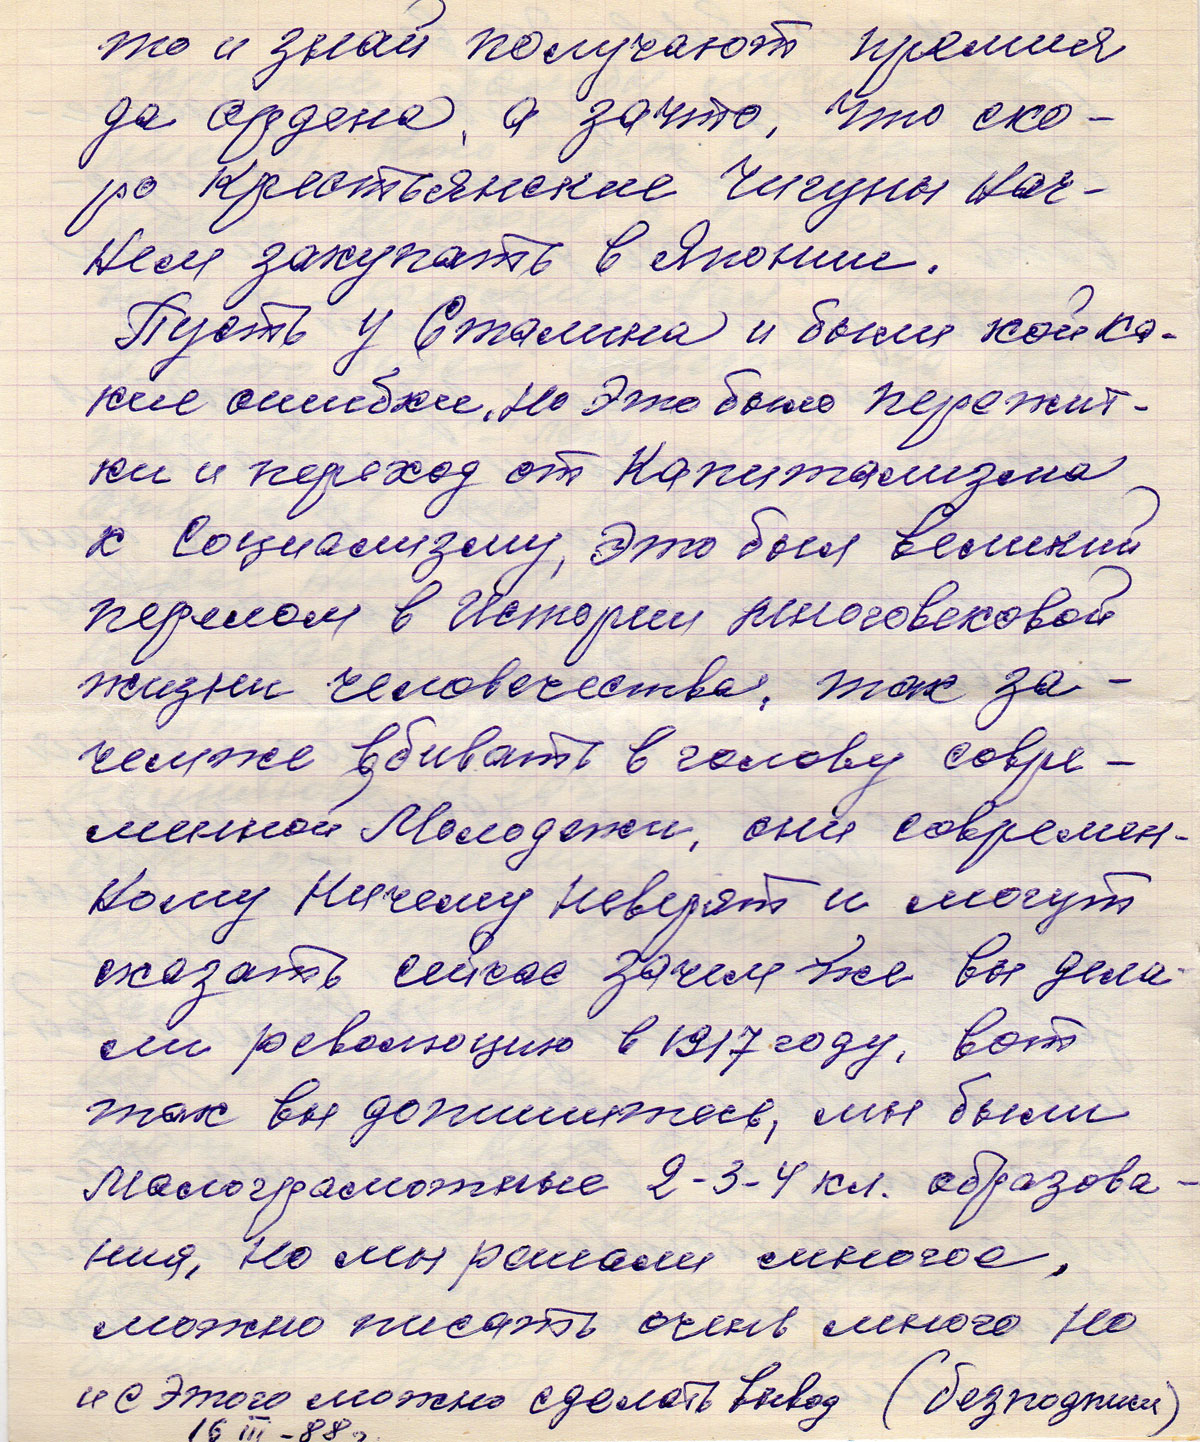 то и знай получают премия
да ордена, а зачто, что ско-
ро Крестьянские Чигуны нач-
нем закупать в Японии.
Пусть у Сталина и были кой ка-
кие ошибки, но это было пережит-
ки и переход от Капитализма
к Социализму, это был великий
перелом в Истории многовековой
жизни человечества, так за-
чемже вбивать в голову совре-
менной Молодежи, они современ-
ному ничему неверят и могут
сказать сейчас зачем же вы дела-
ли революцию в 1917 году, вот
так вы дожились, мы были
Малограмотные 2-3-4 кл. образова-
ния, но мы решали многое,
можно писать очень много но
и с этого можно сделать вывод (безподписи)
16 III -88 г.